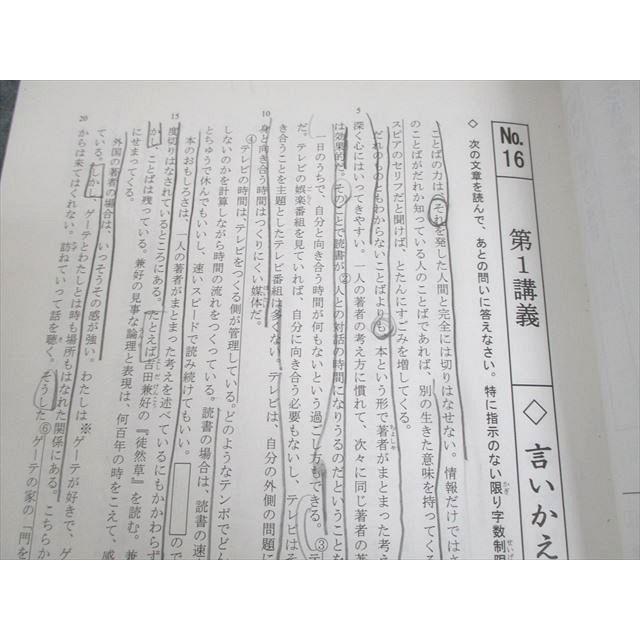 No.
16
第1講義
◇ 言いかえ
◇ 次の文章を読んで、あとの問いに答えなさい。特に指示のない限り字数制限
かぎ
せいげん
ことばの力はそれを発した人間と完全には切りはなせない。情報だけではさ
のことばがだれか知っている人のことばであれば、別の生きた意味を持ってくる
スピアのセリフだと聞けば、とたんにすごみを増してくる。
5
だれのものともわからないことばよりも、本という形で著者がまとまった考え
ちょしゃ
深く心にはいってきやすい。一人の著者の考え方に慣れて、次々に同じ著者の著
は効果的だ。そのことで読書が②人との対話の時間になりうるのだということだ
一日のうちで、自分と向き合う時間が何もないという過ごし方もできる。③テ
だ。テレビの娯楽番組を見ていれば、自分に向き合う必要もないし、テレビはそ
ごらく
き合うことを主題としたテレビ番組は多くない。テレビは、自分の外側の問題に
10
身と向き合う時間はつくりにくい媒体だ。
④テレビの時間は、テレビをつくる側が管理している。どのようなテンポでどん
しないのかを計算しながら時間の流れをつくっている。読書の場合は、読書の速
とちゅうで休んでもいいし、速いスピードで読み続けてもいい。
本のおもしろさは、一人の著者がまとまった考えを述べているにもかかわらず
15
度切りはなされているところにある。たとえば吉田兼好の『徒然草』を読む。兼
よしだけんこう
かし、ことばは残っている。兼好の見事な論理と表現は、何百年の時をこえて、感
にせまってくる。
外国の著者の場合は、いっそうその感が強い。わたしは※ゲーテが好きで、ゲ
ている。しかし、ゲーテとわたしとは時も場所もはなれた関係にある。こちらか
20
からは来てはくれない。訪ねていって話を聴く。そうした⑥ゲーテの家の「門を